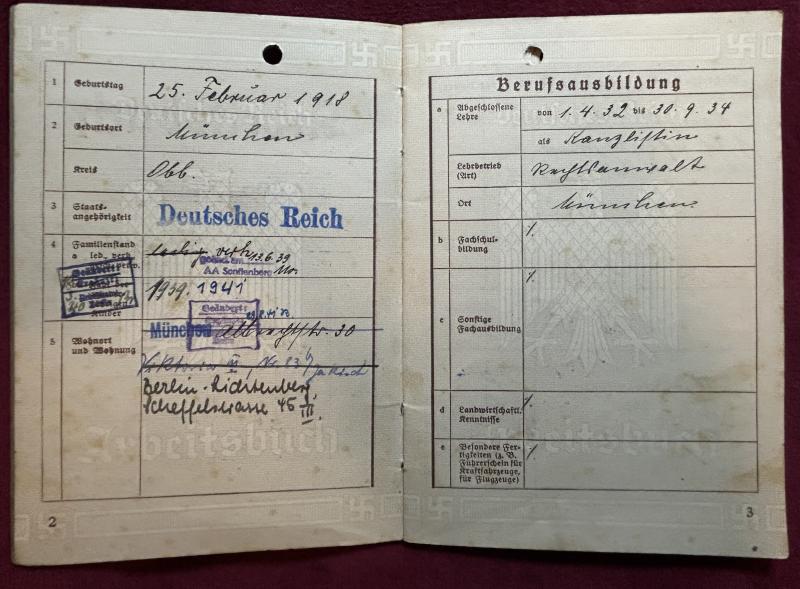 1 Geburtstag 25. Februar 1918
2 Geburtsort München
Kreis Obb.
3 Staats-
angehörigkeit Deutsches Reich
4 Familienstand
a led., verh. ledig verh. 13.6.39
AA Senftenberg
1939. 1941
Kinder
Geändert:
Geändert:
5 Wohnort
und Wohnung
München Albrechtstr. 30
Viktoria III, Nr. 83
Berlin-Lichtenberg
Scheffelstrasse 45 III.
Arbeitsbuch
2
Berufsausbildung
a Abgeschlossene
Lehre
von 1.4.32 bis 30.9.34
als Kanzlistin
Lehrbetrieb
(Art) Rechtsanwalt
Ort München
b Fachschul-
bildung
c Sonstige
Fachausbildung
d Landwirtschaftl.
Kenntnisse
e Besondere Fer-
tigkeiten (z. B.
Führerschein für
Kraftfahrzeuge,
für Flugzeuge)
3